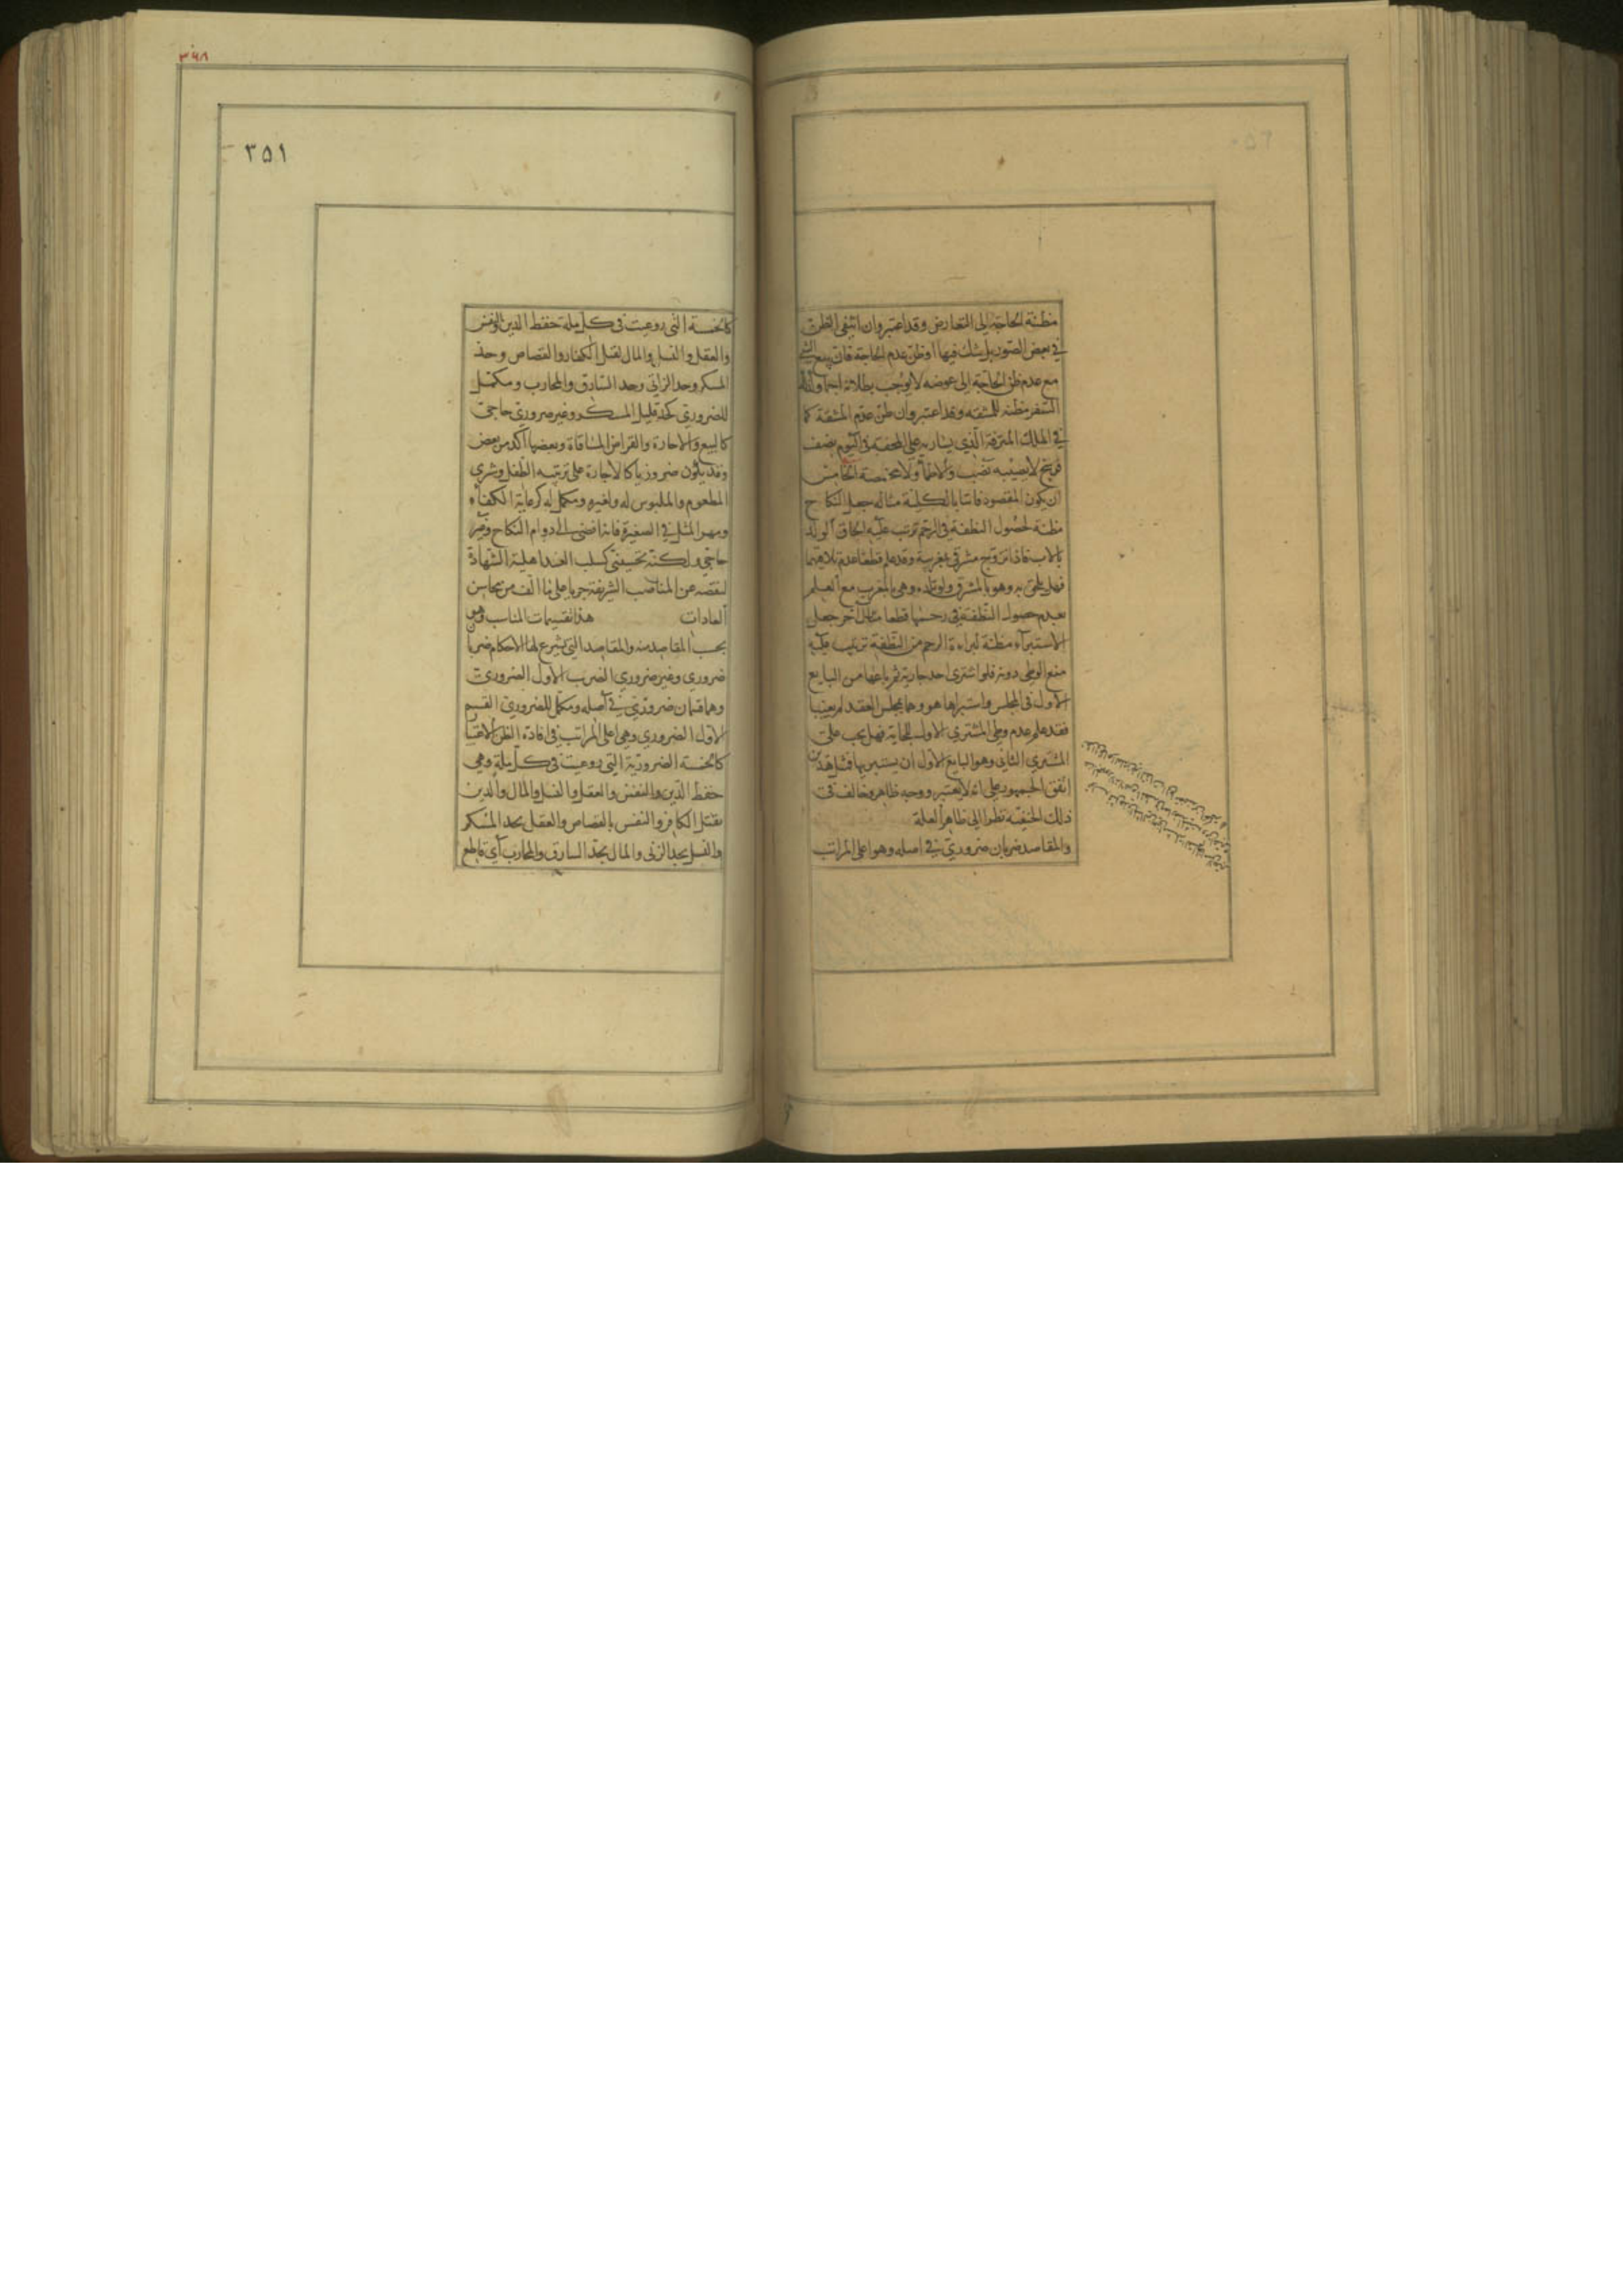 مظنة الحاجة الى التعارض وقد اعتبر وان انتفى الظن
في بعض الصور بل يشك فيها او ظن عدم الحاجة فان بيع الشي
مع عدم ظن الحاجة الى عوضه لا يوجب بطلانه اجماعا وكذا
السفر مظنه للمشقه وقد اعتبر وان ظن عدم المشقة كما
في الملك المترفة الذي يسار به على المحفة في اليوم نصف
فرسخ لا يصيبه نصب ولا ظمأ ولا مخمصة الخامس
ان يكون المقصود فائتا بالكلية مثاله جعل النكاح
مظنة لحصول النطفة في الرحم ترتب عليه الحاق الولد
بالاب فاذا تزوج مشرقي مغربية وقد علم قطعا عدم تلاقيهما
فهل يلحق به وهو بالمشرق ولو تلده وهي بالمغرب مع العلم
بعدم حصول النطفة في رحمها قطعا مثال اخر جعل
الاستبراء مظنة لبراءة الرحم من النطفة ترتيب عليه
منع الوطي دونه فلو اشترى احد جارية ثم باعها من البايع
الاول في المجلس واستبراها هو وهما بمجلس العقد لم يغيبا
فقد علم عدم وطي المشتري الاول للجاية فهل يجب على
المشتري الثاني وهو البايع الاول ان يستبريها فمثل هذين
اتفق الجمهور على انه لا يعتبر ووجه ظاهر وخالف في
ذلك الحنفية نظرا الى ظاهر العلة
والمقاصد ضربان ضروري في اصله وهو اعلى المراتب
٣٦٨
٣٥١
كالخمسة التي روعيت في كل ملة حفظ الدين والنفس
والعقل والنسل والمال لقتل الكفار والقصاص وحد
المسكر وحد الزاني وحد السارق والمحارب ومكمل
للضروري كحد قليل المسكر وغير ضروري حاجي
كالبيع والاجارة والقراض المساقاة وبعضها آكد من بعض
وقد يكون ضروريا كالاجارة على تربيه الطفل وشرى
المطعوم والملبوس له ولغيره ومكمل له كرعاية الكفاءة
ومهر المثل في الصغيرة فانه افضى الى دوام النكاح وغير
حاجي ولكنه تحسيني كسلب العبد اهلية الشهادة
لنقصه عن المناصب الشريفة جريا على ما الف من محاسن
العادات هذا تقسيمات المناسب وهو
بحسب المقاصد منه والمقاصد التي يشرع لها الاحكام ضربان
ضروري وغير ضروري الضرب الاول الضروري
وهما قسمان ضروري في اصله ومكمل للضروري القسم
الاول الضروري وهي اعلى المراتب في افادة الظن الاقسام
كالخمسة الضرورية التي روعيت في كل ملة وهي
حفظ الدين والنفس والعقل والنسل والمال والدين
بقتل الكافر والنفس بالقصاص والعقل بحد المسكر
والنسل بحد الزنى والمال بحد السارق والمحارب اي قاطع